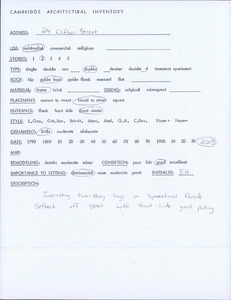 CAMBRIDGE ARCHITECTURAL INVENTORY
ADDRESS: 24 Clifton Street
USE: residential commercial religious
STORIES: 1 2 3 4 5
TYPE: single double row duplex decker double d tenement apartment
ROOF: hip gable front gable flank mansard flat
MATERIAL: frame brick SIDING: original substandard
PLACEMENT: narrow to street broad to street square
ENTRANCE: flank front side front center
ORNAMENT: little moderate elaborate
DATE: 1790 1800 10 20 30 40 50 60 70 80 90 1900 10 20 30
MAP:
REMODELING: drastic moderate minor CONDITION: poor fair good excellent
IMPORTANCE TO SETTING: moderate great INITIALS:
DESCRIPTION:
Interesting two-story bays on Symmetrical facade
Setback off street with